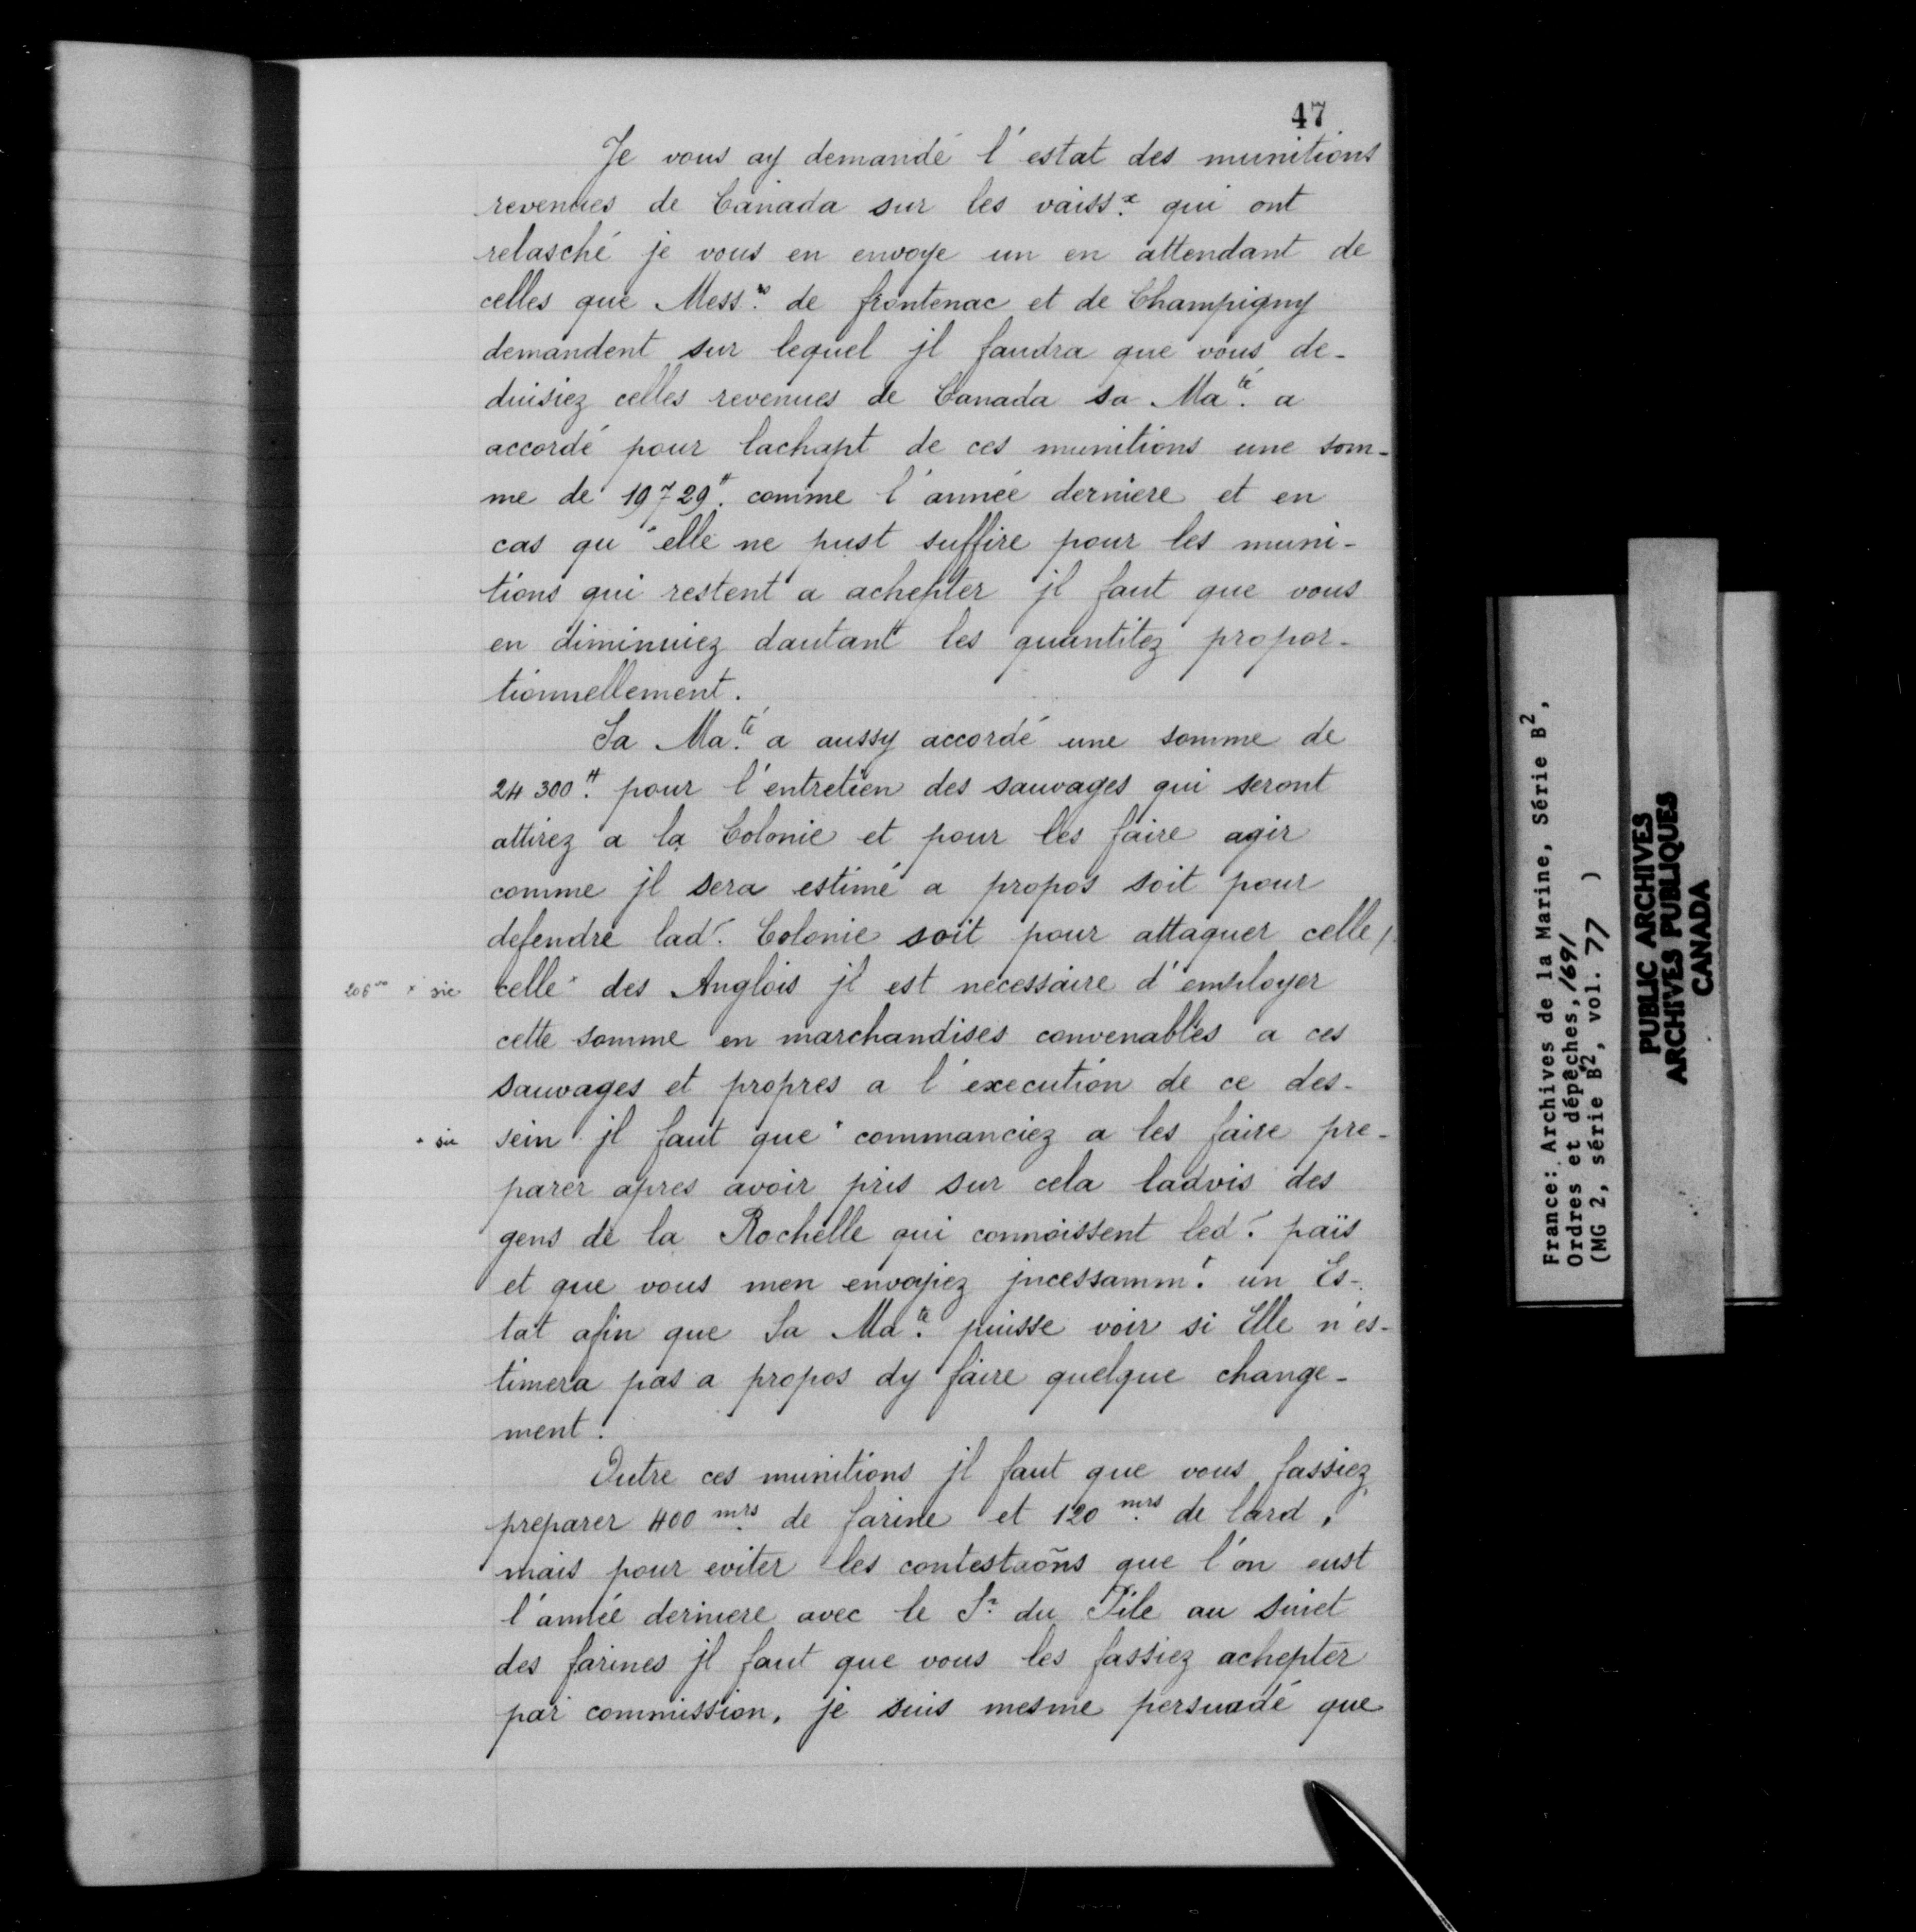 47
Je vous ay demandé l'estat des munitions
revenues de Canada sur les vaiss.x qui ont
relasché je vous en envoye un en attendant de
celles que Mess.rs de frontenac et de Champigny
demandent sur lequel jl faudra que vous de-
duisiez celles revenues de Canada sa Ma.té a
accordé pour lachapt de ces munitions une som-
me de 19729tt. comme l'année derniere et en
cas qu'elle ne pust suffire pour les muni-
tions qui restent a achepter jl faut que vous
en diminuiez dautant les quantitez propor-
tionnellement.
Sa Ma.té a aussy accordé une somme de
24300tt. pour l'entretien des sauvages qui seront
attirez a la Colonie et pour les faire agir
comme jl sera estimé a propos soit pour
defendre lad.' Colonie soit pour attaquer celle/
x sic celle x des Anglois jl est necessaire d'employer
cette somme en marchandises convenables a ces
sauvages et propres a l'execution de ce des-
x sic sein jl faut que x commanciez a les faire pre-
parer apres avoir pris sur cela ladvis des
gens de la Rochelle qui connoissent led.' païs
et que vous men envoyiez jncessamm.t un Es-
tat afin que Sa Ma.té puisse voir si Elle n'es-
timera pas a propos dy faire quelque change-
ment.
Outre ces munitions jl faut que vous fassiez
preparer 400 mrs de farine et 120 mrs de lard,
mais pour eviter les contestaõns que l'on eust
l'année derniere avec le S.r du Pile au suiet
des farines jl faut que vous les fassiez achepter
par commission, je suis mesme persuadé que
France: Archives de la Marine, Série B2,
Ordres et dépêches, 1691
(MG 2, série B2, vol. 77 )
PUBLIC ARCHIVES
ARCHIVES PUBLIQUES
CANADA